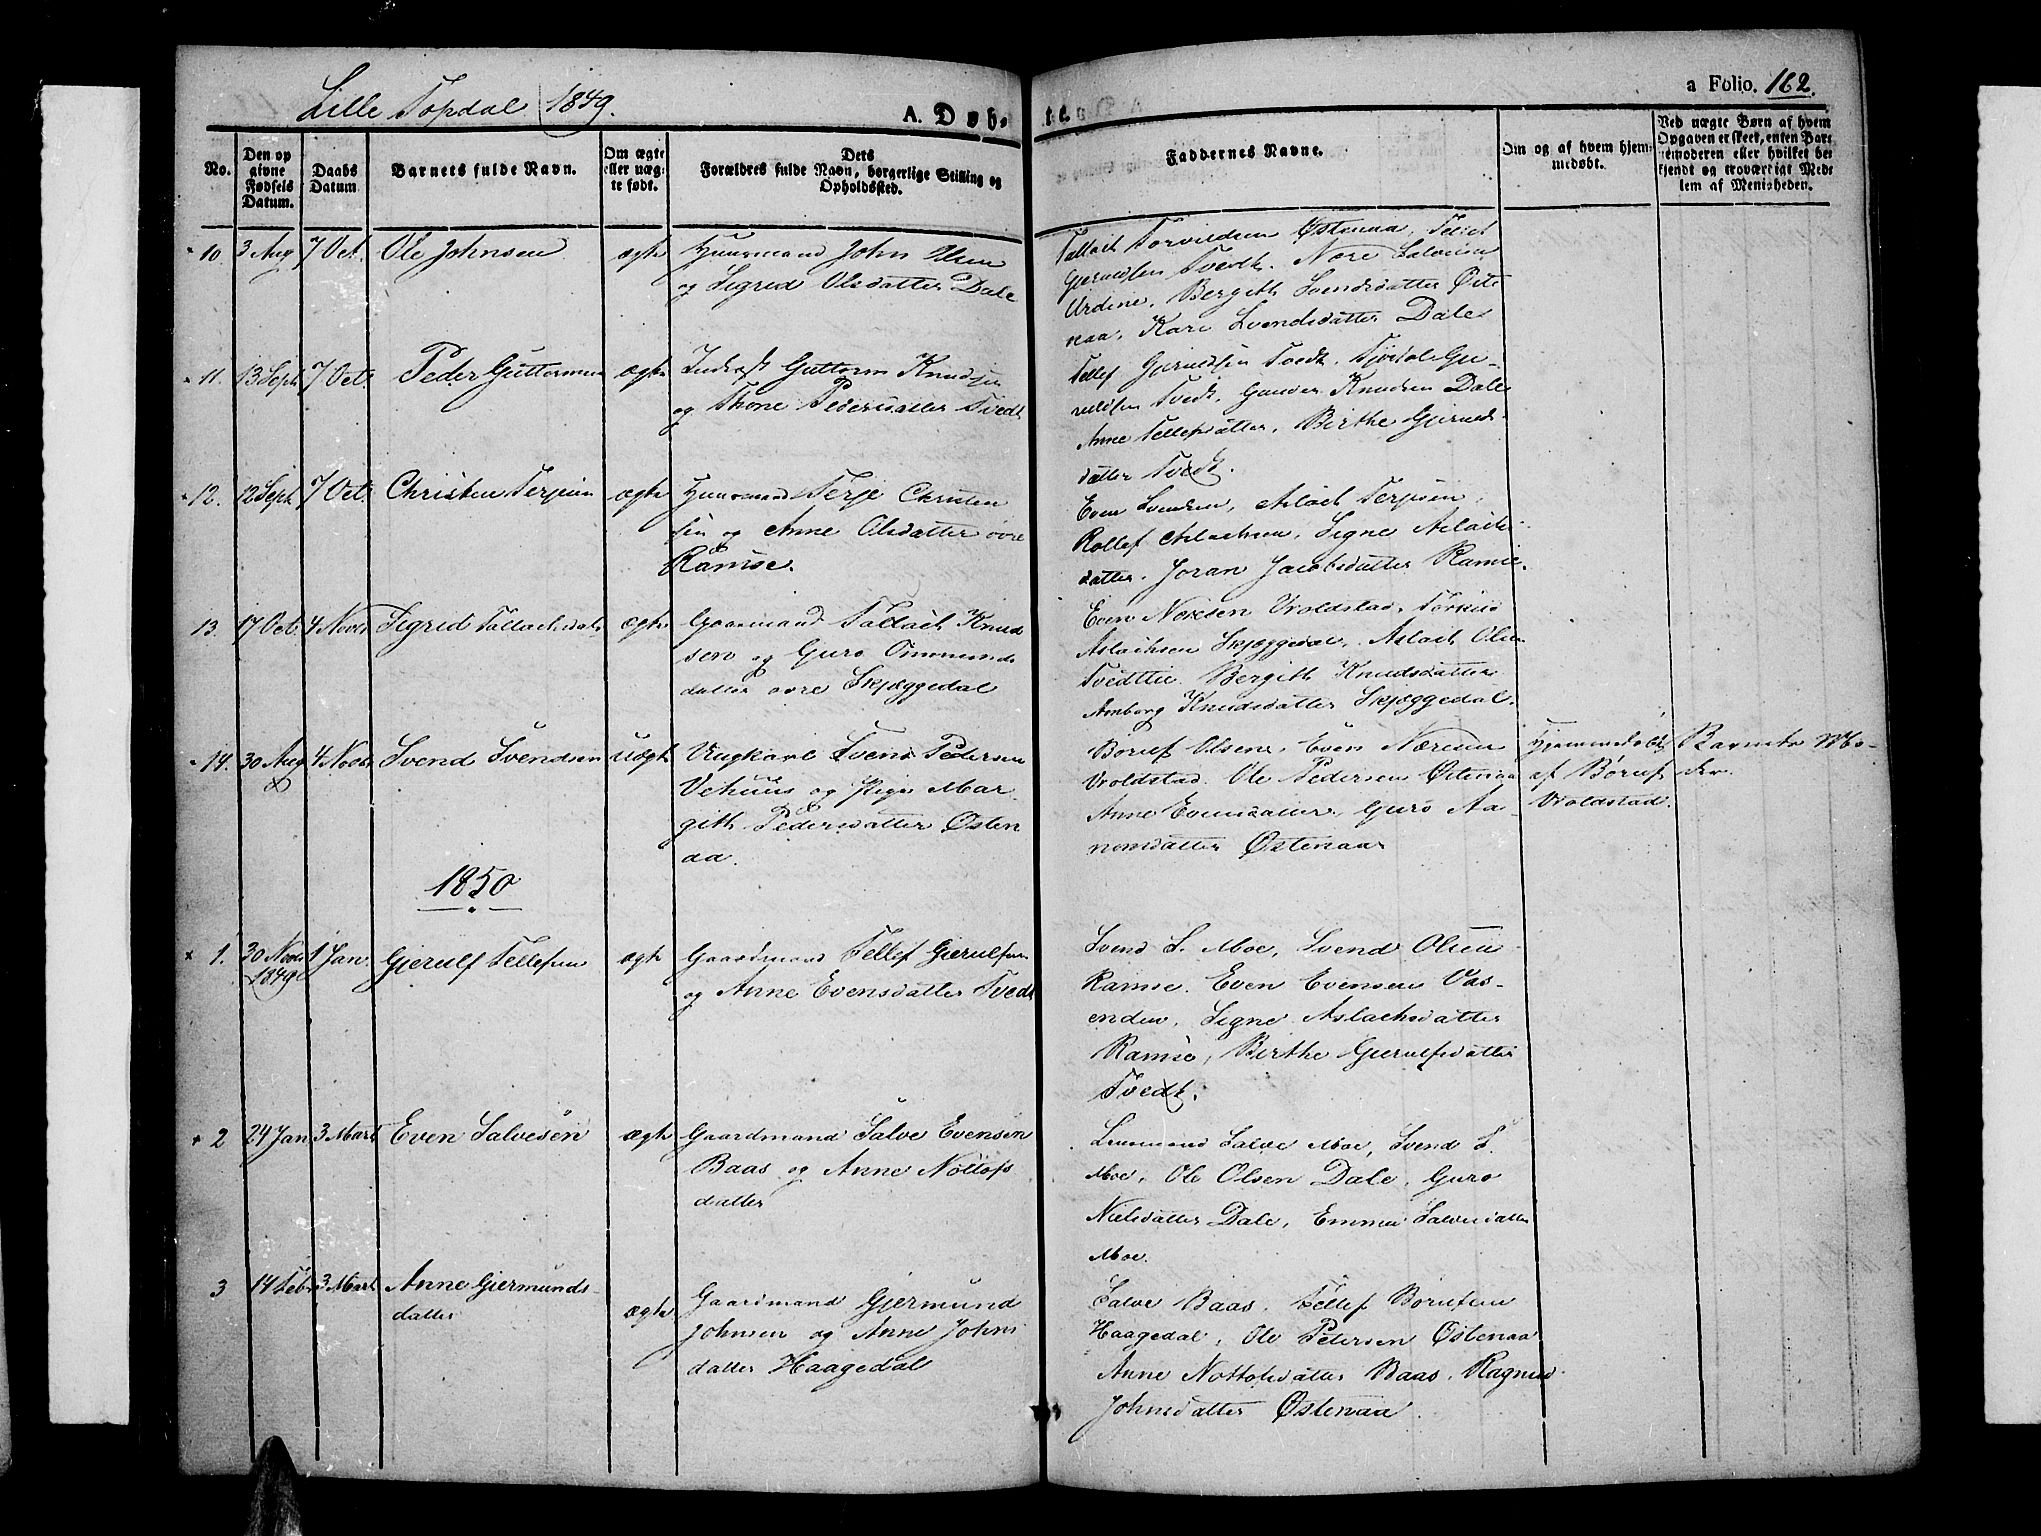 Lille Topdal 1849.
A. Døbte.
a Folio. 162.
No.
Den opgivne Fødsels Datum.
Daabs Datum
Barnets fulde Navn.
Om ægte eller uægte født.
Dets Forældres fulde Navn, borgerlige Stilling og Opholdssted.
Faddernes Navne.
Om og af hvem hjemmedøbt.
Ved uægte Børn af hvem Opgaven er skeet, enten Barnemoderen eller hvilket bekjendt og troværdigt Medlem af Menigheden.
10. 3 Aug 7 Oct. Ole Johnsen ægte Huusmand John Olsen
og Sigrid Olsdatter Dale
Tallach Torvildsen Østenaa, Tellef
Gjerulfsen Tvedt. Nore Salvesen
Urdine. Bergith Svendsdatter Øste
naa, Kari Svendsdatter Dale
11. 13 Sept 7 Oct. Peder Guttormsen ægte Inderst Guttorm Knudsen
og Thone Pedersdatter Tvedt
Tellef Gjerulfsen Tvedt, Gje-
rulfsen Tvedt. Gunder Knudsen Dale
Anne Tellefsdatter, Birthe Gjerulfs-
datter Tvedt.
12. 12 Sept 7 Oct. Christen Terjesen ægte Huusmand Terje Christen
sen og Anne Olsdatter øvre
Ramse.
Even Svendsen, Aslach Terjesen,
Rollef Aslachsen, Signe Aslachs-
datter. Joran Jacobsdatter Ramse.
13. 17 Oct. 4 Novbr Sigrid Tallachsdatr ægte Gaarmand Tallach Knud
sen og Guro Ommunds
datter øvre Skjæggedal
Even Noresen Vroldstad, Torkild
Aslachsen Skjæggedal. Aslach Olsen
Tvedttie. Bergith Knudsdatter
Amborg Knudsdatter Skjæggedal.
14. 30 Aug 4 Novbr Svend Svendsen uægte Ungkarl Svend Pedersen
Vehuus og Pige Mar-
gith Pedersdatter Østen
aa.
Børulf Olsen, Even Noresen
Vroldstad. Ole Pedersen Østenaa
Anne Evensdatter, Guro Aa-
nonsdatter Østenaa
Hjemmedøbt
af Børulf
Vroldstad.
Barnets Mo-
der.
1850
1. 30 Novbr 1849 1 Jan. Gjerulf Tellefsen ægte Gaardmand Tellef Gjerulfsen
og Anne Evensdatter Tvedt
Svend S. Moe, Svend Olsen
Ramse. Even Evensen Vas-
enden, Signe Aslachsdatter
Ramse, Birthe Gjerulfsdatter
Tvedt.
2 24 Jan 3 Marts Even Salvesøn ægte Gaardmand Salve Evensøn
Baas og Anne Nottofs
datter
Salve Moe, Svend S.
Moe, Ole Olsen Dale, Guro
Nielsdatter Dale, Emma Salvesdatter
Moe.
3 14 Febr 3 Marts Anne Gjermunds-
datter
ægte Gaardmand Gjermund
Johnsen og Anne Johns
datter Haagedal
Salve Baas, Tellef Børufsen
Haagedal, Ole Petersen Østenaa
Anne Nottofsdatter Baas. Ragnild
Johnsdatter Østenaa.